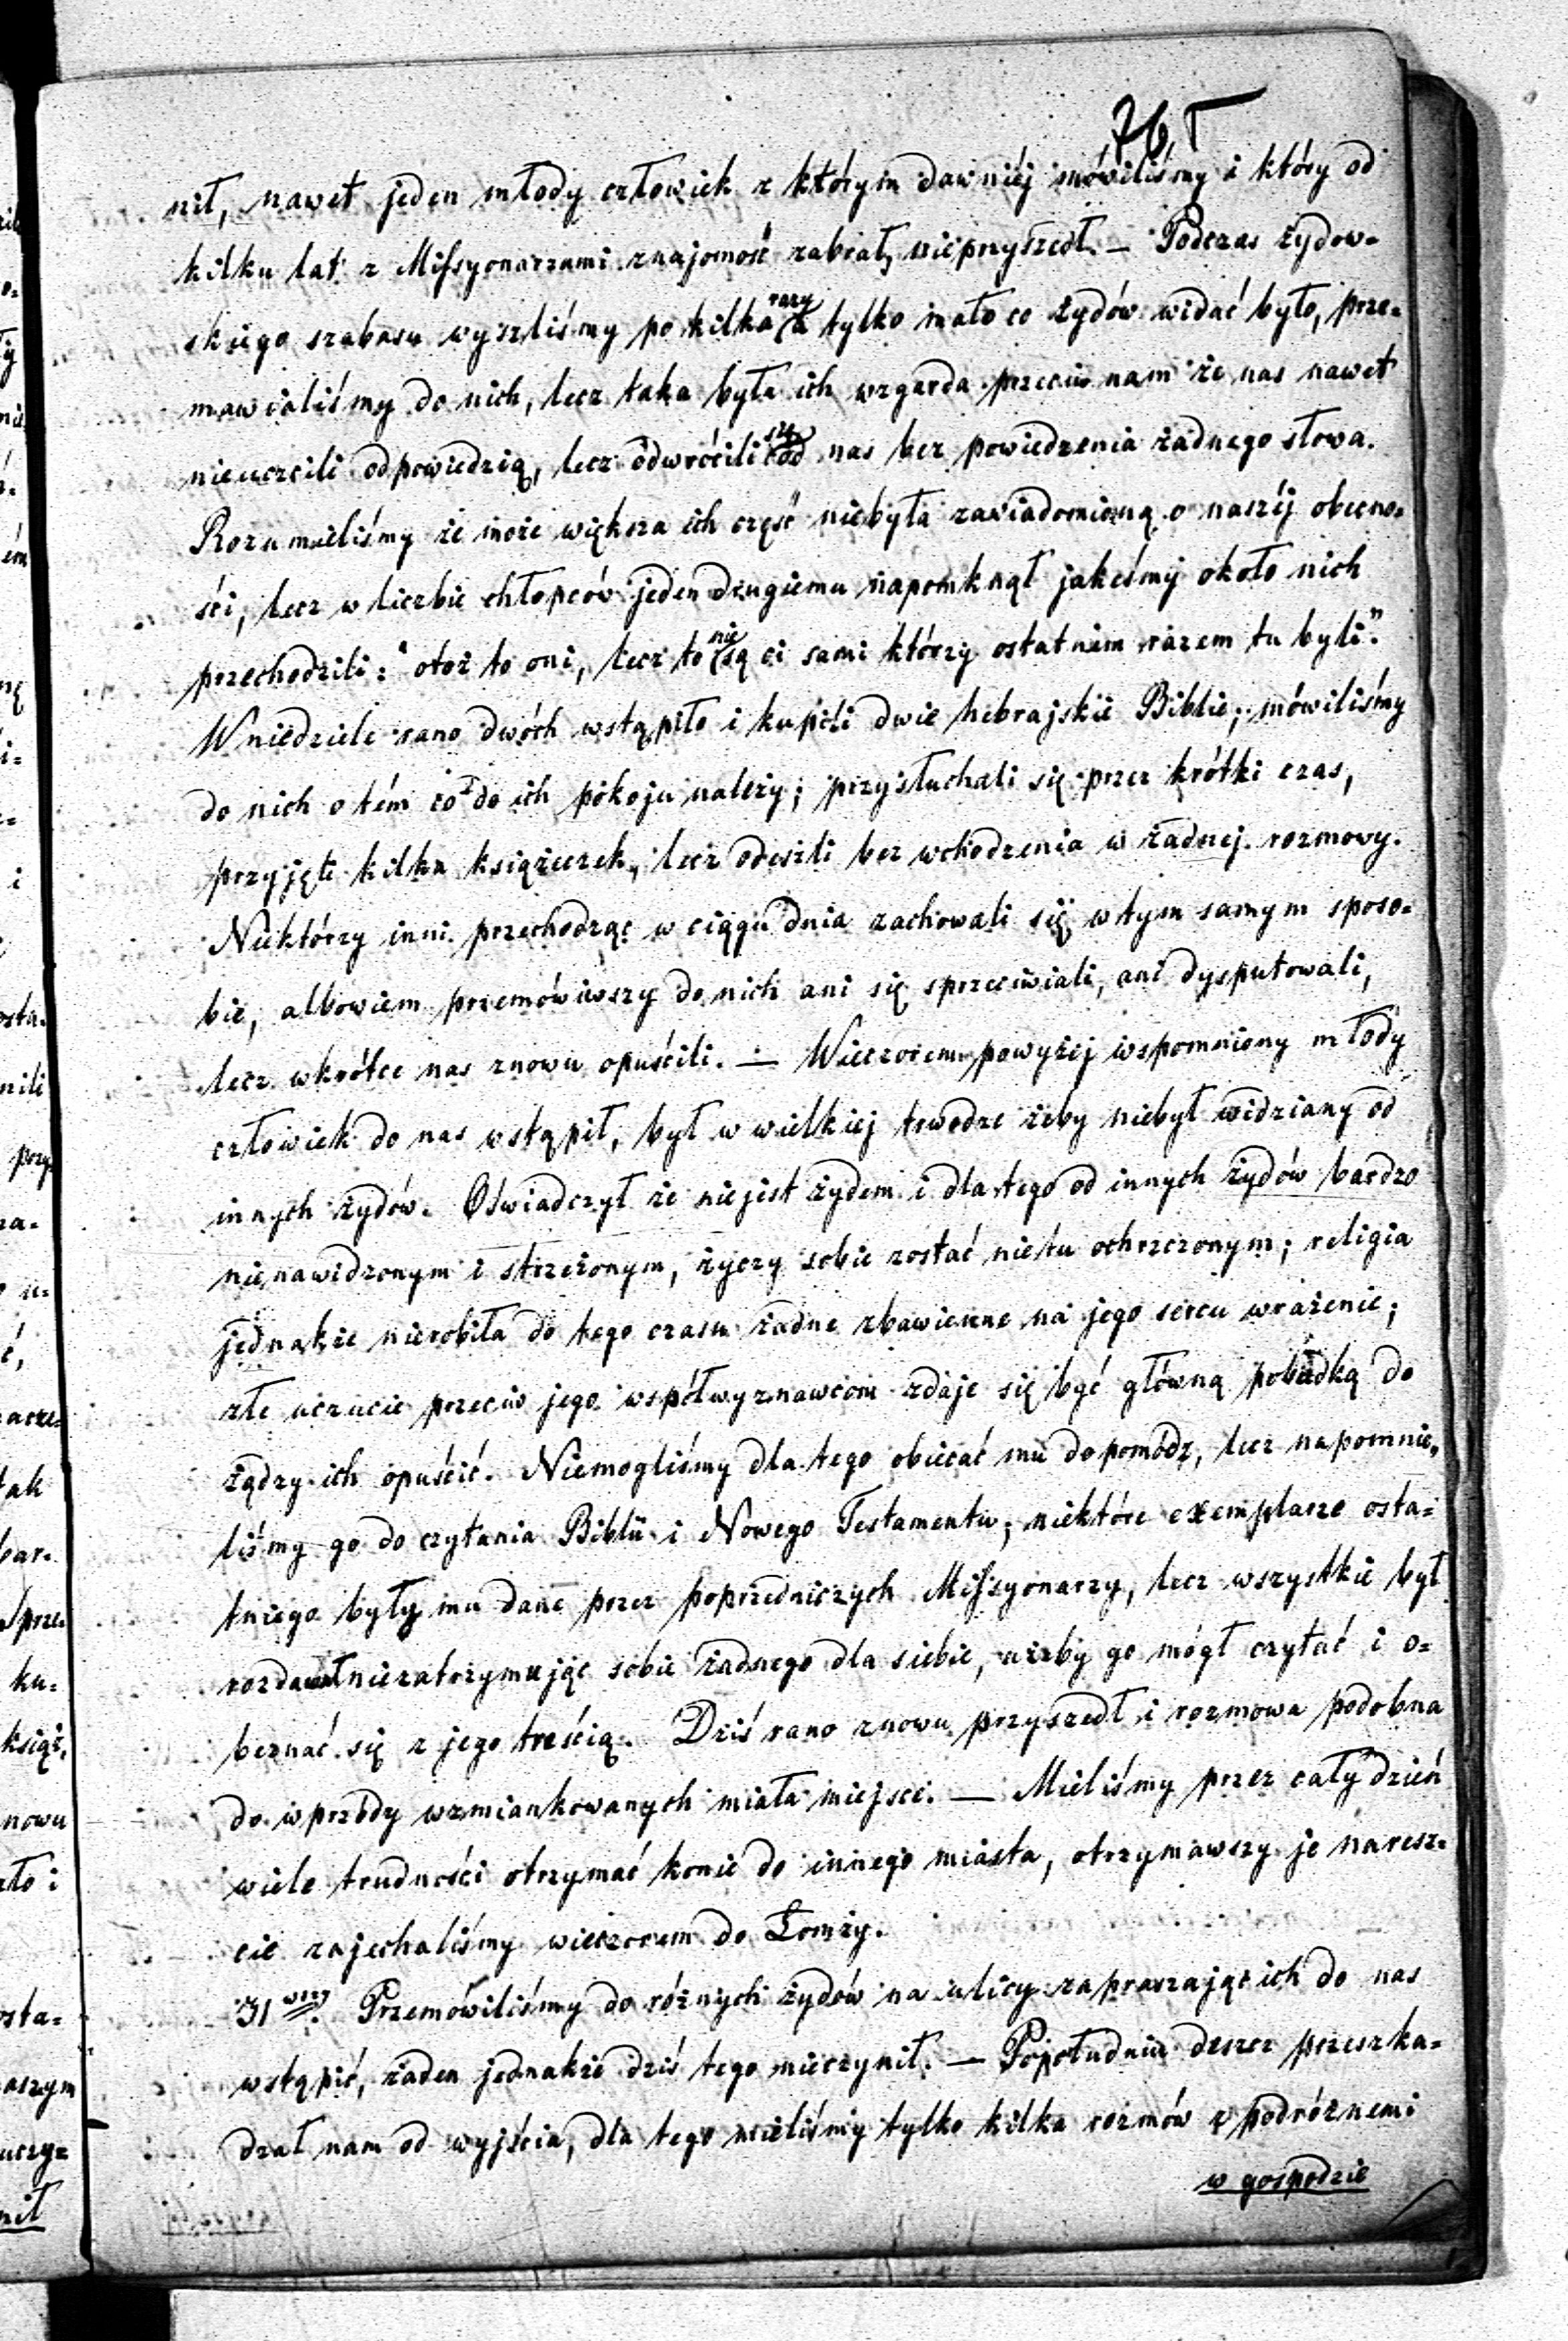 76
nił, nawet jeden młody człowiek z którym dawniéj mówiliśmy i który od
kilku lat z Missyonarzami znajomość zabrał, nieprzyszedł. — Podczas żydow-
skiego szabasu wyszliśmy po kilka razy a tylko mało co żydów widać było, prze-
mawialiśmy do nich, lecz taka była ich wzgarda przeciw nam że nas nawet
nieuczcili odpowiedzią, lecz odwrócili się od nas bez powiedzenia żadnego słowa.
Rozumieliśmy że może większa ich część niebyła zawiadomioną o naszéj obecno-
ści, lecz w liczbie chłopców jeden drugiemu napomknął jakeśmy około nich
przechodzili: "otoż to oni, lecz to nie są ci sami którzy ostatnim razem tu byli".
W niedziele rano dwóch wstąpiło i kupili dwie hebrajskie Biblie; mówiliśmy
do nich o tém co do ich pokoju należy; przysłuchali się przez krótki czas,
przyjęli kilka książeczek, lecz odeszli bez wchodzenia w żadnej rozmowy.
Niektórzy inni przechodząc w ciągu dnia zachowali się w tym samym sposo-
bie, albowiem przemówiwszy do nich ani się sprzeciwiali, ani dysputowali,
lecz wkrótce nas znowu opuścili. — Wieczorem powyżej wspomniony młody
człowiek do nas wstąpił, był w wielkiej trwodze żeby niebył widziany od
innych żydów. Oświadczył że niejest żydem i dlatego od innych żydów bardzo
nienawidzonym i strzeżonym, życzy sobie zostać nietu ochrzczonym; religia
jednakże nierobiła do tego czasu żadne zbawienne na jego sercu wrażenie;
złe uczucie przeciw jego współwyznawcom zdaje się być główną pobudką do
żądzy ich opuścić. Niemogliśmy dla tego obiecać mu dopomódz, lecz napomnie-
liśmy go do czytania Biblii i Nowego Testamentu; niektóre exemplarze osta-
tniego były mu dane przez poprzedniczych Missyonarzy, lecz wszystkie był
rozdawał niezatrzymując sobie żadnego dla siebie, ażeby go mógł czytać i o-
beznać się z jego treścią. Dziś rano znowu przyszedł i rozmowa podobna
do wprzódy wzmiankowanych miała miejsce. — Mieliśmy przez cały dzień
wiele trudności otrzymać konie do innego miasta, otrzymawszy je naresz-
cie zajechaliśmy wieczorem do Łomży.
31wszy. Przemówiliśmy do różnych żydów na ulicy zapraszając ich do nas
wstąpić, żaden jednakże dziś tego nieczynił. — Popołudniu deszcz przeszka-
dzał nam od wyjścia, dla tego mieliśmy tylko kilka rozmów z podróżnemi
w gospodzie